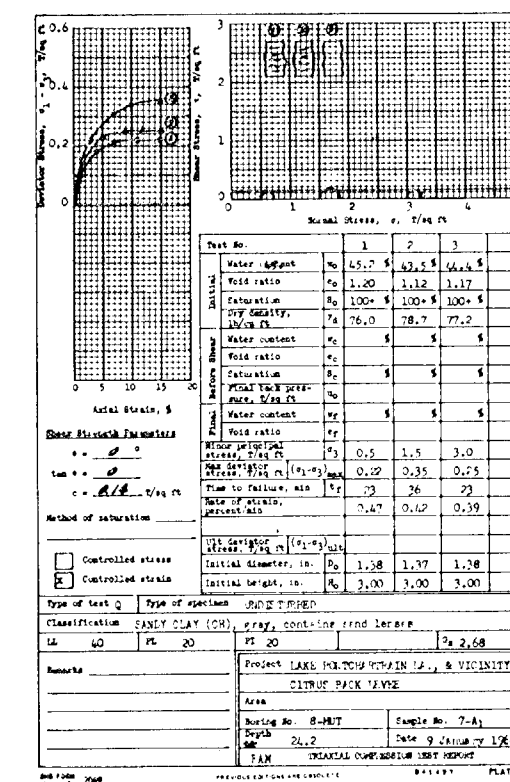 Deviator Stress, σ1 - σ3, T/sq ft
0.6
0.4
0.2
0
0 5 10 15 20
Axial Strain, %
Shear Stress, τ, T/sq ft
3
2
1
0
0 1 2 3 4
Normal Stress, σ, T/sq ft
Shear Strength Parameters
φ = 0 °
tan φ = 0
c = T/sq ft
Method of saturation
Controlled stress
X Controlled strain
Test No. 1 2 3
Initial
Water content w₀ 45.7 % 43.5 % 44.4 %
Void ratio e₀ 1.20 1.12 1.17
Saturation S₀ 100+ % 100+ % 100+ %
Dry density, lb/cu ft γd 76.0 78.7 77.2
Before Shear
Water content wc % % %
Void ratio ec
Saturation Sc % % %
Final back pressure, T/sq ft u₀
Final
Water content wf % % %
Void ratio ef
Minor principal stress, T/sq ft σ3 0.5 1.5 3.0
Max deviator stress, T/sq ft (σ1-σ3)max 0.22 0.35 0.25
Time to failure, min tf 23 36 23
Rate of strain, percent/min 0.47 0.42 0.39
Ult deviator stress, T/sq ft (σ1-σ3)ult
Initial diameter, in. D₀ 1.38 1.37 1.38
Initial height, in. H₀ 3.00 3.00 3.00
Type of test Q Type of specimen UNDISTURBED
Classification SANDY CLAY (CH), gray, contains sand lenses
LL 40 PL 20 PI 20 Gs 2.68
Remarks
Project LAKE PONTCHARTRAIN LA., & VICINITY
CITRUS BACK LEVEE
Area
Boring No. 8-MUT Sample No. 7-A1
Depth 24.2 Date 9 January 196
TRIAXIAL COMPRESSION TEST REPORT
PREVIOUS EDITIONS ARE OBSOLETE
PLAT